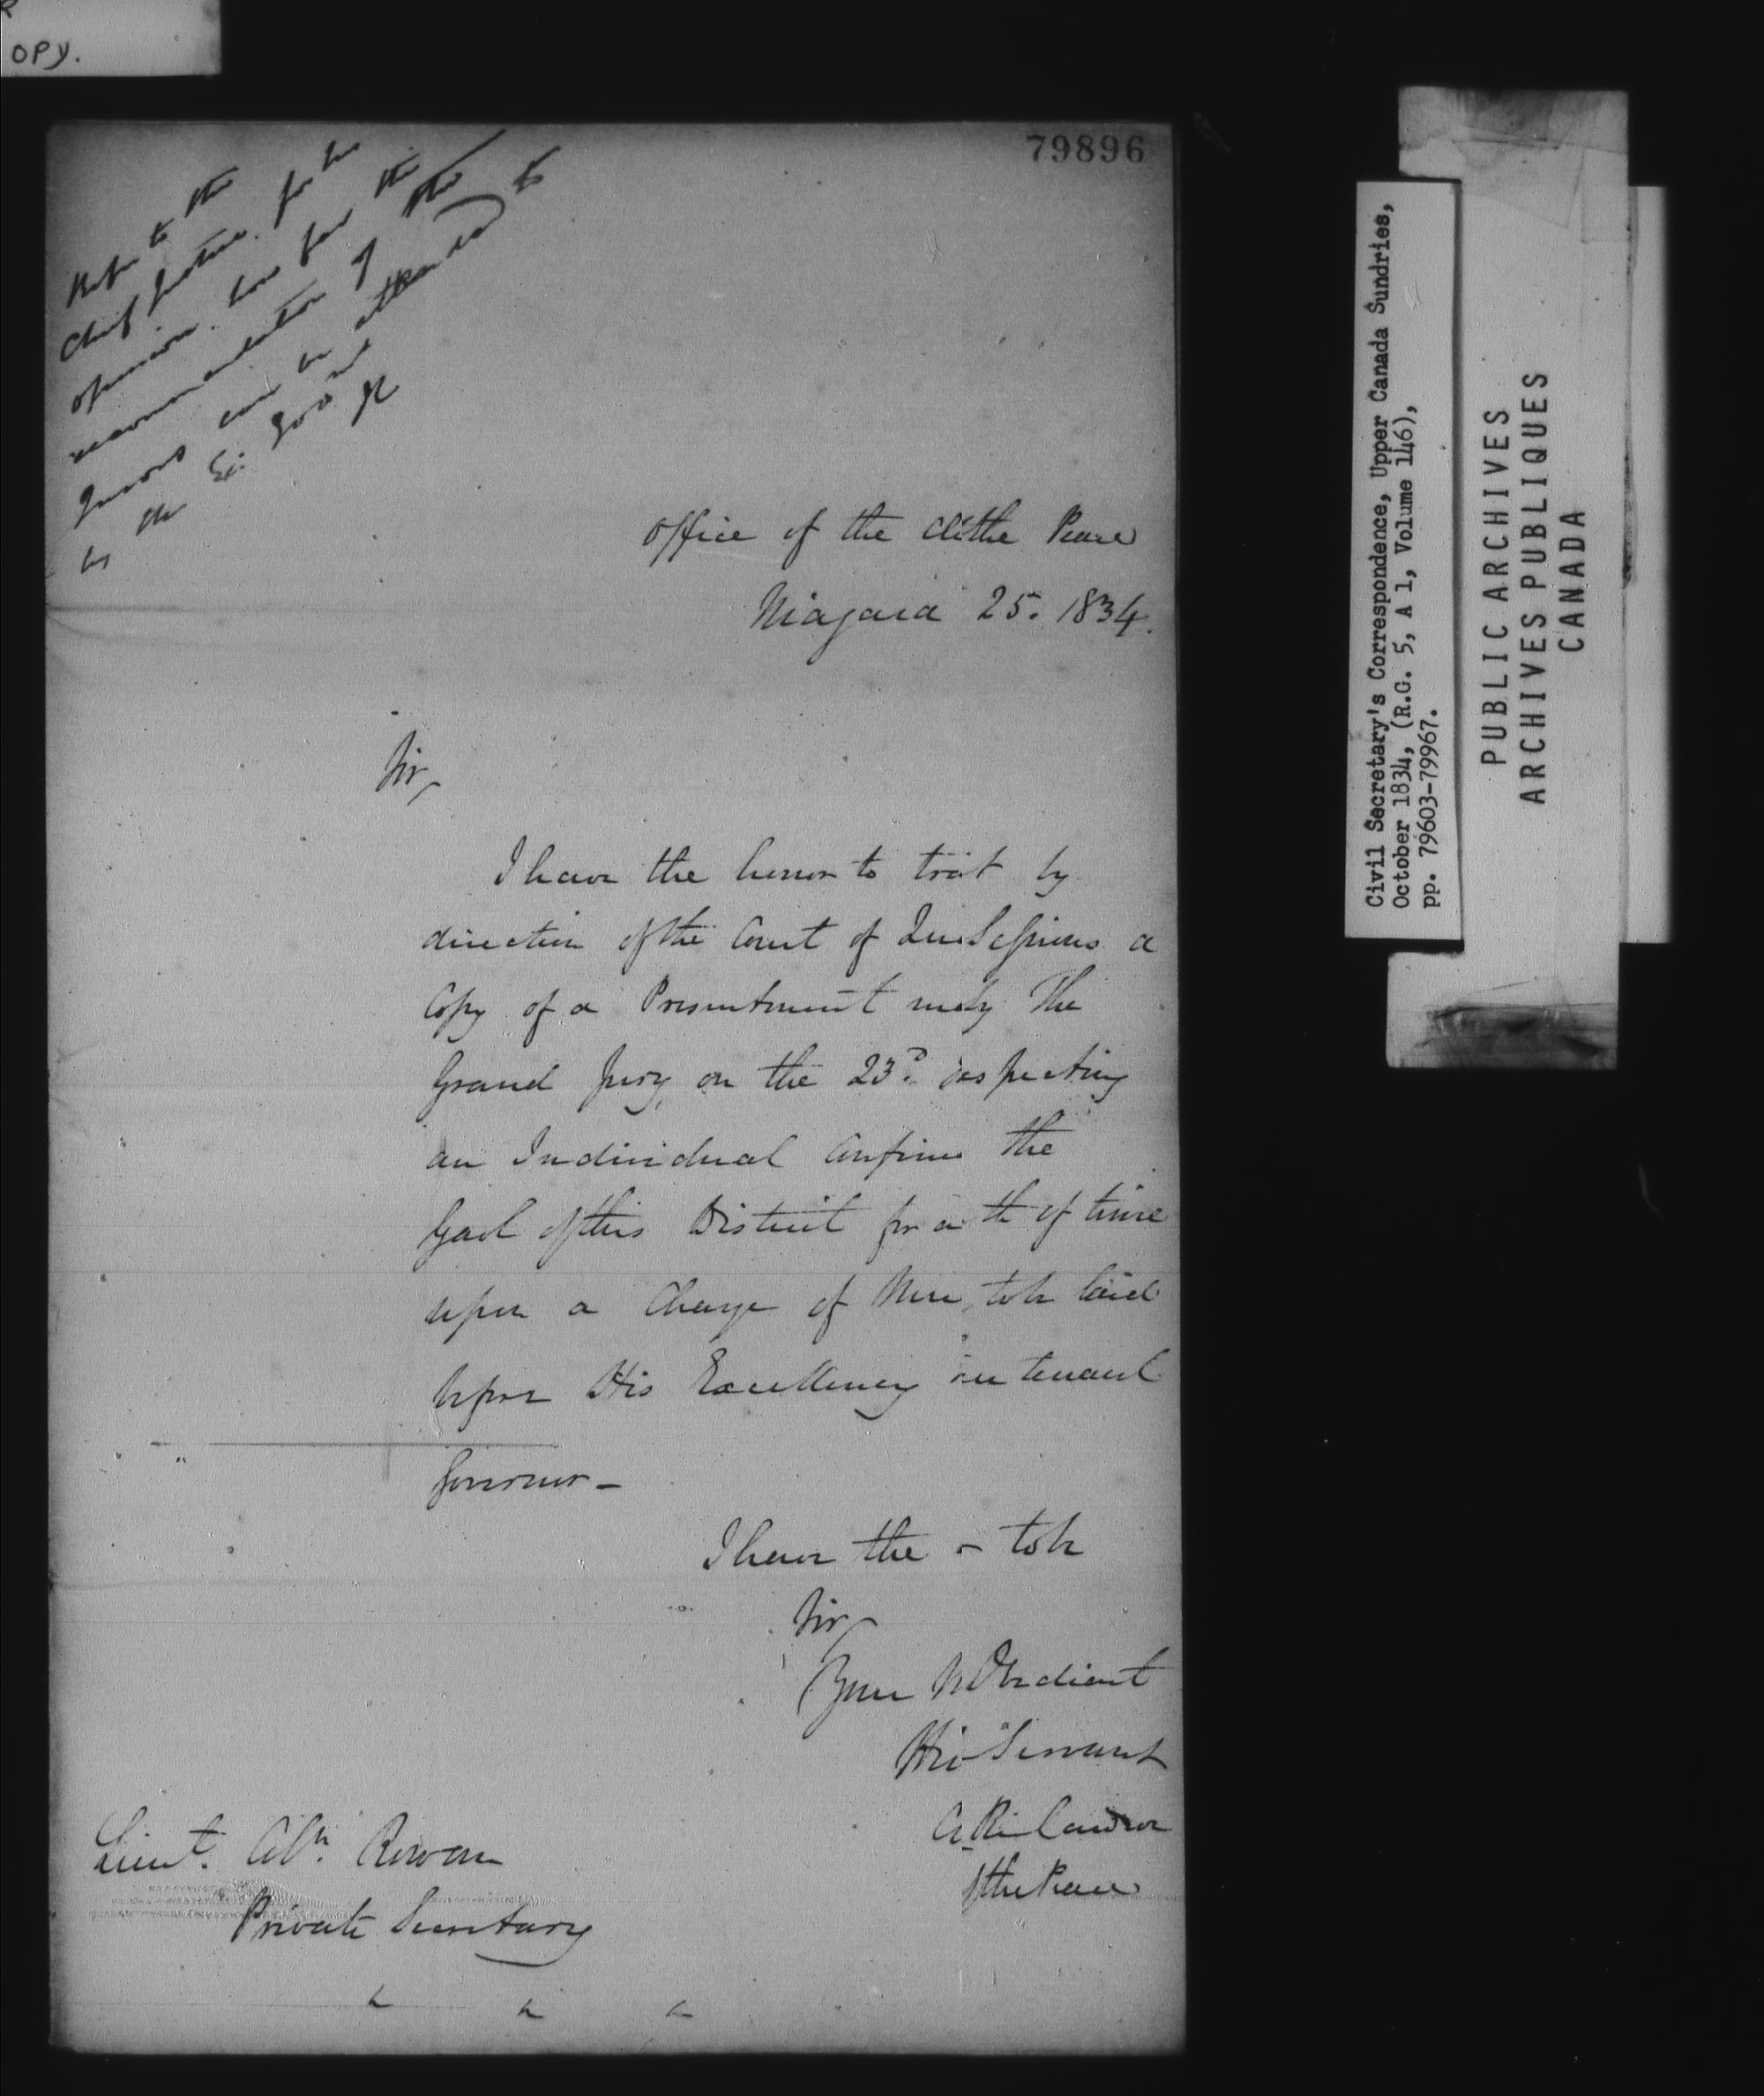 OPY.
79896
Refer to the
Chief Justice for his
opinion how far the
recommendation of the
Jurors can be attended to
by the Lt. Gov
Office of the Cl the Peace
Niagara 25. 1834.
Sir,
I have the honor to by
direction of the Court of Qur Sessions a
Copy of a Presentment The
Grand Jury on the 23d respecting
an Individual Confin the
Gaol of this District for a th of time
upon a Charge of to be laid
before His Excellency tenant
Governor –
I have the – to be
Sir
Your Obedient
Servant
of the Peace
Lieut. Coln. Rowan
Private Secretary
Civil Secretary's Correspondence, Upper Canada Sundries,
October 1834, (R.G. 5, A 1, Volume 146),
pp. 79603-79967.
PUBLIC ARCHIVES
ARCHIVES PUBLIQUES
CANADA